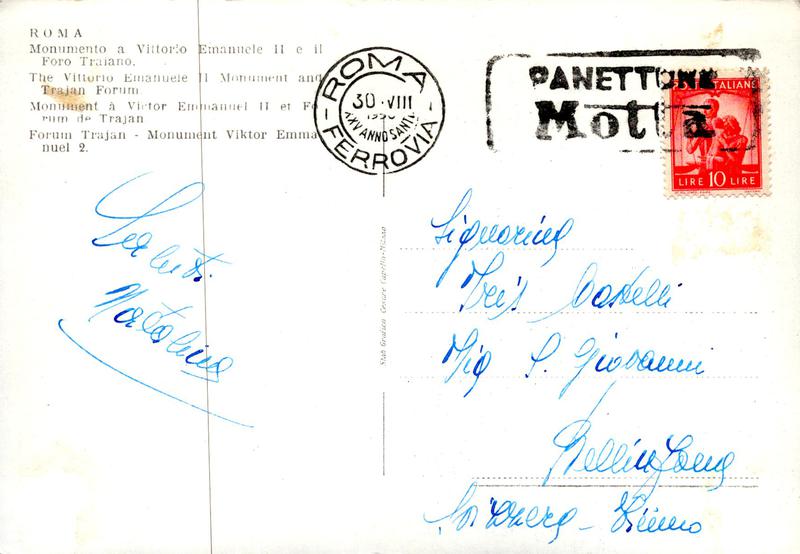 ROMA
Monumento a Vittorio Emanuele II e il
Foro Traiano.
The Vittorio Emanuele II Monument and
Trajan Forum
Monument à Victor Emmanuel II et Fo
rum de Trajan
Forum Trajan - Monument Viktor Emma
nuel 2.
ROMA
30·VIII
1950
XXV ANNO SANTO
FERROVIA
PANETTONE
Motta
ITALIANE
LIRE 10 LIRE
Saluti
Natalina
Stab Grafico Cesare Capello-Milano
Signorina
Iris Castelli
Via S. Giovanni
Bellinzona
Svizzera - Ticino